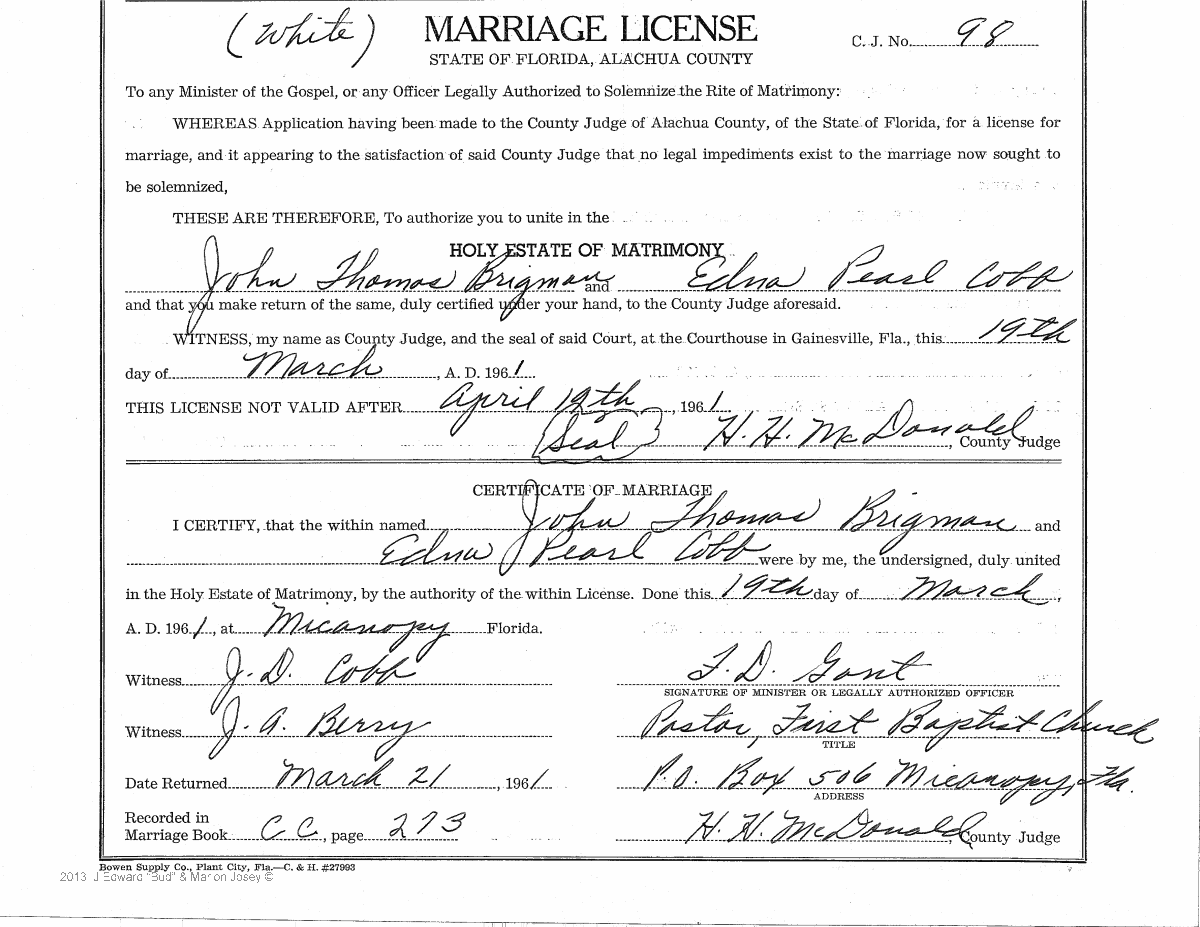 (White)
MARRIAGE LICENSE
C. J. No. 98
STATE OF FLORIDA, ALACHUA COUNTY
To any Minister of the Gospel, or any Officer Legally Authorized to Solemnize the Rite of Matrimony:
WHEREAS Application having been made to the County Judge of Alachua County, of the State of Florida, for a license for
marriage, and it appearing to the satisfaction of said County Judge that no legal impediments exist to the marriage now sought to
be solemnized,
THESE ARE THEREFORE, To authorize you to unite in the
HOLY ESTATE OF MATRIMONY
John Thomas Brigman and Edna Pearl Cobb
and that you make return of the same, duly certified under your hand, to the County Judge aforesaid.
WITNESS, my name as County Judge, and the seal of said Court, at the Courthouse in Gainesville, Fla., this 19th
day of March, A. D. 1961
THIS LICENSE NOT VALID AFTER April 19th, 1961
(Seal) H. H. McDonald, County Judge
CERTIFICATE OF MARRIAGE
I CERTIFY, that the within named John Thomas Brigman and
Edna Pearl Cobb were by me, the undersigned, duly united
in the Holy Estate of Matrimony, by the authority of the within License. Done this 19th day of March,
A. D. 1961, at Micanopy Florida.
Witness J. D. Cobb F. D. Gont
SIGNATURE OF MINISTER OR LEGALLY AUTHORIZED OFFICER
Witness J. A. Berry Pastor, First Baptist Church
TITLE
Date Returned March 21, 1961 P.O. Box 506 Micanopy, Fla.
ADDRESS
Recorded in
Marriage Book CC, page 273 H. H. McDonald, County Judge
Bowen Supply Co., Plant City, Fla.—C. & H. #27993
2013 J Edward "Bud" & Marion Josey ©